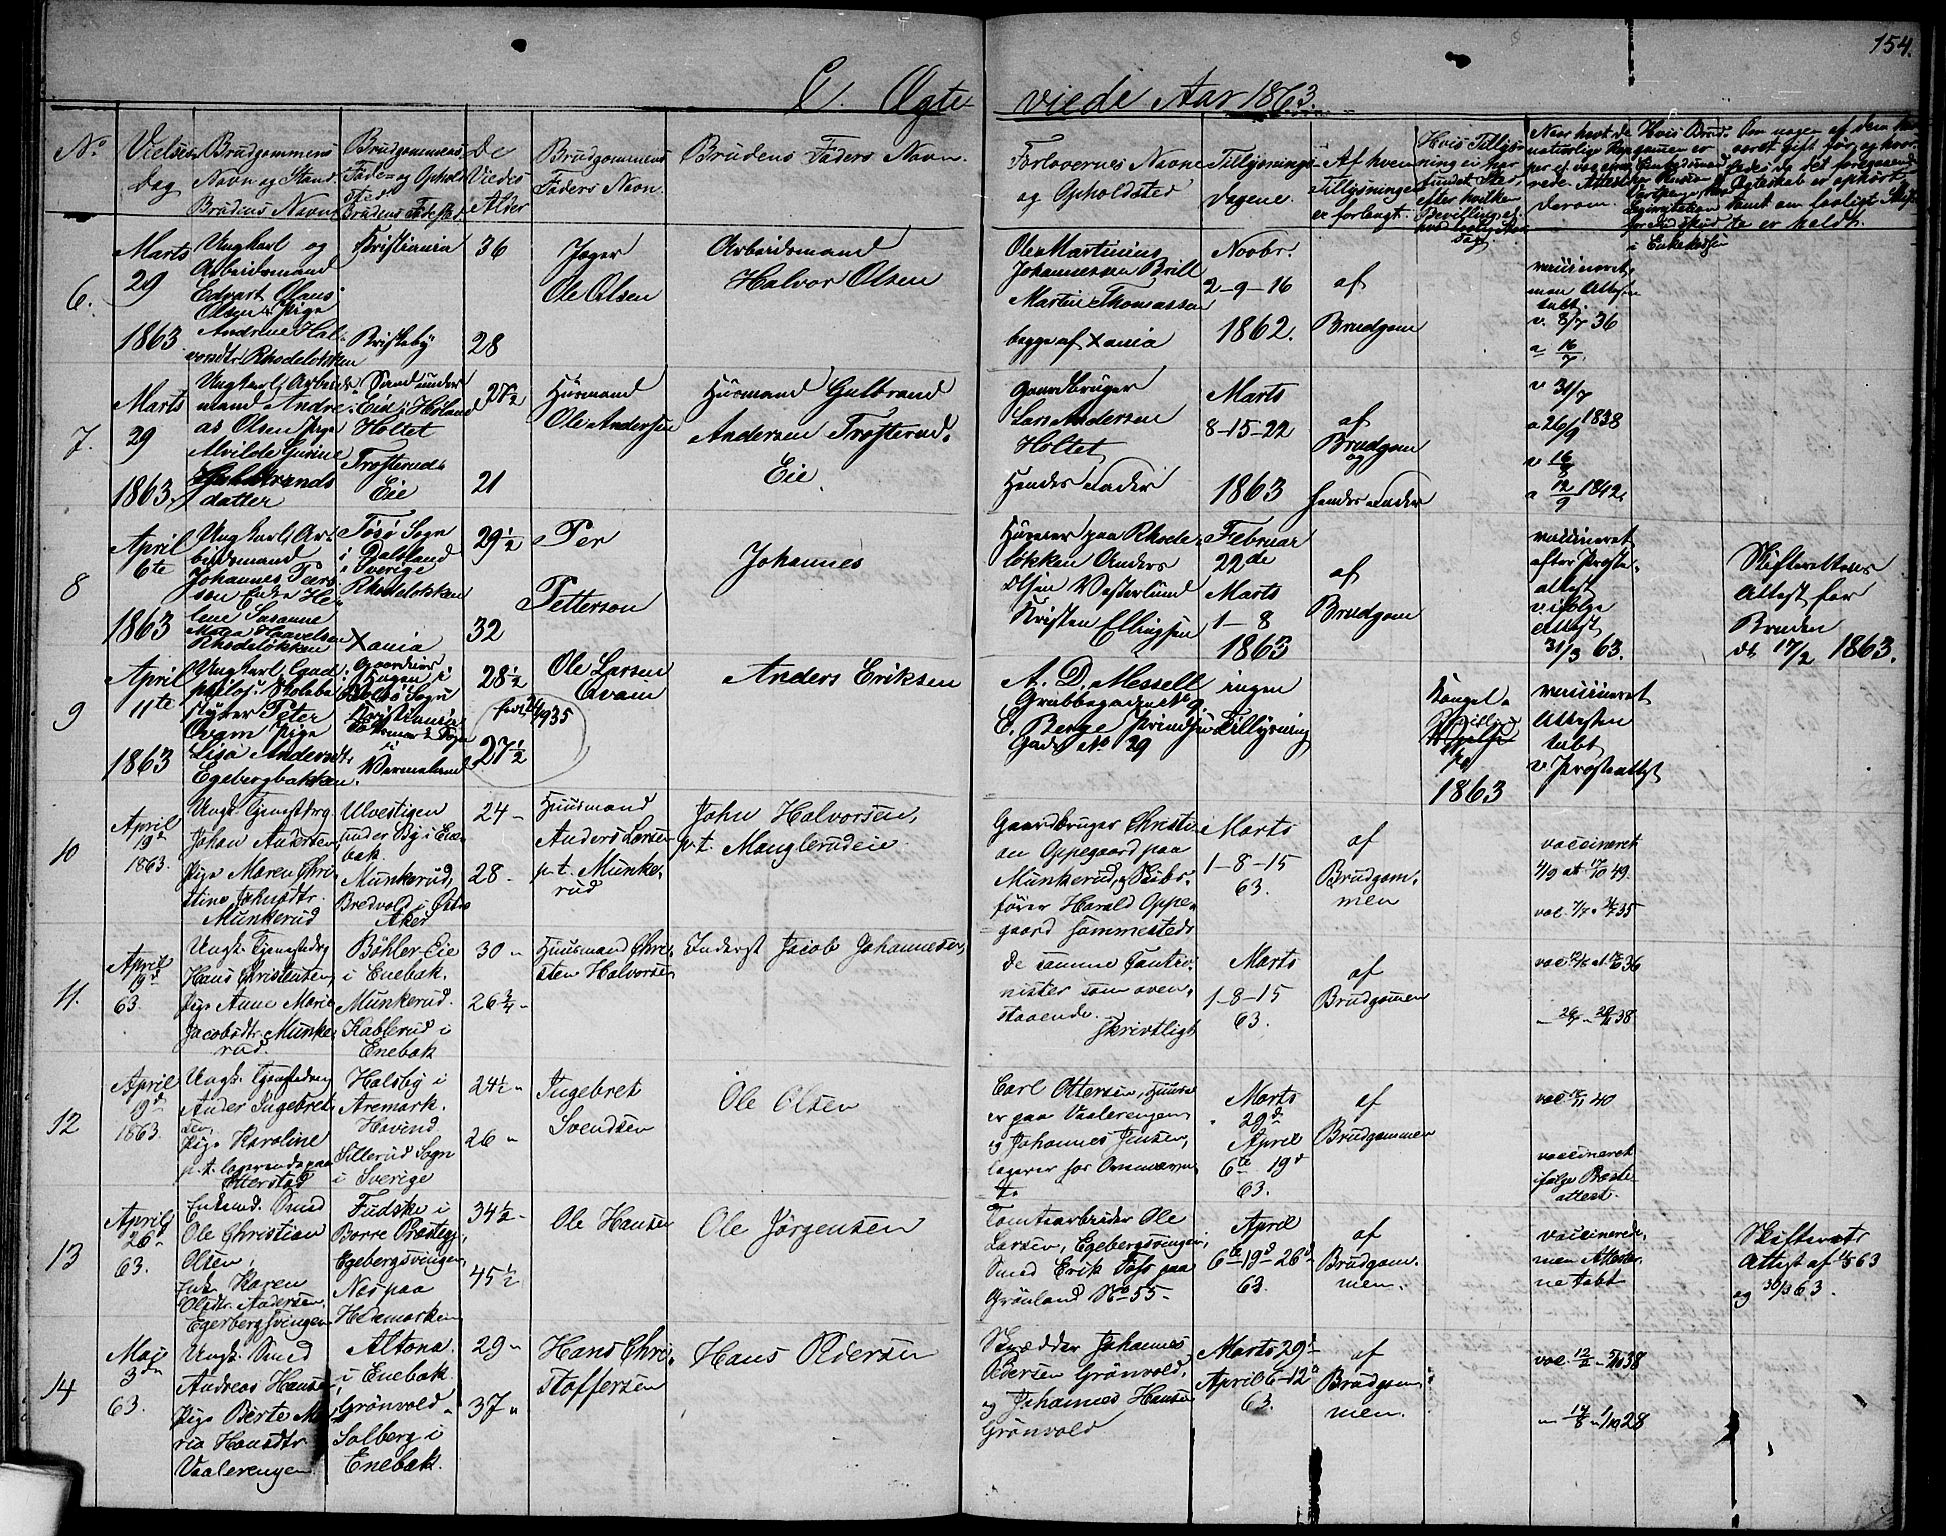 154.
C. Ægte viede Aar 1863.
No
Vielses Dag
Brudgommens Navn og Stand.
Brudens Navn
Brudgommens Føde- og Opholds Sted
Brudens Fødested
De Viedes Alder
Brudgommens Faders Navn.
Brudens Faders Navn.
Forlovernes Navne og Opholdsted
Tillysnings dagene.
Af hvem Tillysningen er forlangt.
6.
Marts
29
1863
Ungkarl og
Arbeidsmand
Edvart Olaus
Olsen Pige
Andrine Hal-
vorsdtr. Rhodeløkken
Kristiania
36
28
Jæger
Ole Olsen
Arbeidsmand
Halvor Olsen
Ole Martinius
Johannessen Brill
Martin Thomassen
begge af Xania
Novbr.
2-9-16
1862.
af
Brudgom
vaccineret
men Attesten
tabt.
v. 8/7 36
a 16/7.
7.
Marts
29
1863
Ungkarl Arbeids-
mand Andre-
as Olsen Pige
Alvilde Gurine
Gulbrands
datter
Sand under
Eid i Høland
Holtet
Trosterud
Eie
27½
21
Husmand
Ole Andersen
Husmand Gulbrand
Andersen Trosterud.
Eie
Gaardbruger
Lars Andersen
Holtet
Hendes Fader
Marts
8-15-22
1863
af
Brudgom
og
hendes Fader
v 31/7
a 26/9 1838
v 16/8
a 12/9 1842.
8
April
6te
1863
Ungkarl, Ar-
beidsmand
Johannes Peers-
son Enke He-
lene Susanne
Haavelsen
Rhodeløkken
Tøsø Sogn
i Dalsland
i Sverige
Rhodeløkken
Xania
29½
32
Per
Petterson
Johannes
Huseier paa Rhode-
løkken Anders
Olsen Vesterlund
Kristen Ellingsen
Februar
22de
Marts
1-8
1863
af
Brudgom
vaccineret
efter Præste-
attest
v ifølge
Attest
31/3 63.
Skifterettens
Attest for
Bruden
dt 17/2 1863.
9
April
11te
1863
Ungkarl, Cand
philos: Skolebe-
styrer Peter
Qvam Pige
Lisa Andersdt.
Egebergbakken.
Sogn
Kristiania
i
Vermeland
28½
27½
Ole Larsen
Qvam
Anders Eriksen
A. D. Messell
Grubbegaden No 9.
E. Berge Prindsens
Gade No 29
ingen
Tillysning
Kongel.
1863
vaccineret
Attesten
tabt
v. Præsteattest
10
April
19de
1863.
Ungk. Tjenestedrg
Johan Andersen
Pige Maren Chri-
stine Johnsdtr.
Munkerud
Ulvestigen
under By i Ene-
bak.
Munkerud,
Bredvold i Østre
Aker
24-
28-
Huusmand
Anders Larsen
p.t. Munke-
rud
John Halvorsen,
p.t. Manglerudeie.
Gaardbruger Christi-
an Oppegaard paa
Munkerud, og Skibs-
fører Harald Oppe-
gaard sammesteds
Marts
1-8-15
63.
af
Brudgom-
men
vaccineret
4/9 at 17/10 49.
11.
April
19de
63.
Ungk. Tjenestedrg
Hans Christensen,
Pige Anne Marie
Jacobsdtr. Munke-
rud.
Bøhler Eie
i Enebak.
Munkerud.
Kablerud i
Enebak
30 -
26¾-
Huusmand Chri-
sten Halvorsen
Inderst Jacob Johannesen,
De samme Cautio-
nister som oven-
staaende.
skrivtligt
Marts
1-8-15
63.
af
Brudgomen
12
April
19de
1863.
Ungk. Tjenestedrg
Ander Ingebret-
sen,
Pige Karoline
p.t. logerende paa
Etterstad
Holsby i
Aremark.
Hovind
Sillerud Sogn
i Sverige
24½-
26 -
Ingebret
Svendsen
Ole Olsen
Carl Ottersen, Huusei-
er paa Vaalerengen
og Johannes Jensen,
Marts
29de
April
6te 19de
63.
af
Brudgommen
vaccineret
ifølge Præste-
attest.
13
April
26-
63.
Enkmd. Smed
Ole Christian
Olsen,
Enke Karen
Olsdtr. Andersen,
Egebergsvingen
Fudske i
Borre Præstegj.
Egebergsvingen,
Nes paa
Hedemarken
34½-
45½
Ole Hansen
Ole Jørgensen
Tomtearbeider Ole
Larsen, Egebergsvingen,
Smed Erik Tofs paa
Grønland No 55-
April
6te-19de-26de
63.
af
Brudgom-
men.
vaccinerede,
men Attester-
ne tabt
Skifterets
Attest af 14/3 63
og 30/3 63.
14
Mai
3de
63.
Ungk. Smed
Andreas Hansen,
Pige Berte Ma-
ria Hansdtr.
Vaalerengen
Altona.
i Enebak
Grønvold-
Solberg i
Enebak.
29-
37-
Hans Chri-
stoffersen
Hans Pedersen
Skrædder Johannes
Pedersen Grønvold,
og Johannes Hansen
Grønvold
Marts 29de
April 6-12de
63.
af
Brudgom-
men.